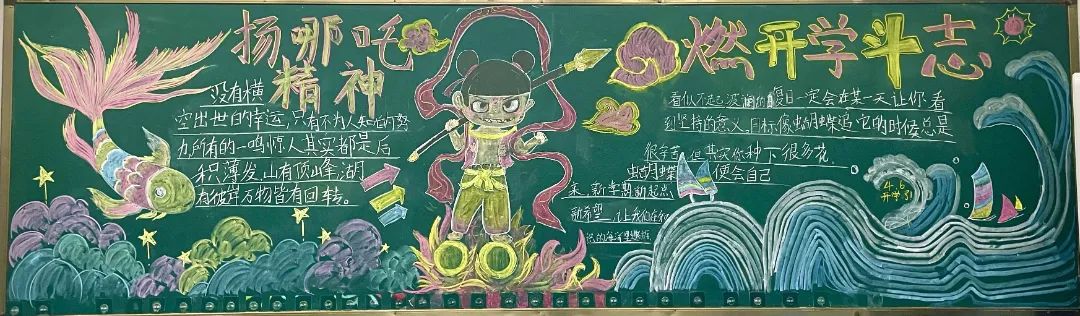 扬哪吒
精神
没有横
空出世的幸运,只有不为人知的努
力,所有的一鸣惊人其实都是后
积薄发,山有顶峰,湖
有彼岸万物皆有回转。
燃开学斗志
看似不起波澜的夏日一定会在某一天让你看
到坚持的意义,目标像蝴蝶追它的时候总是
很辛苦,但其实你种下很多花,
蝴蝶便会自己
来,新学期新起点
新希望
4.6
开学了!